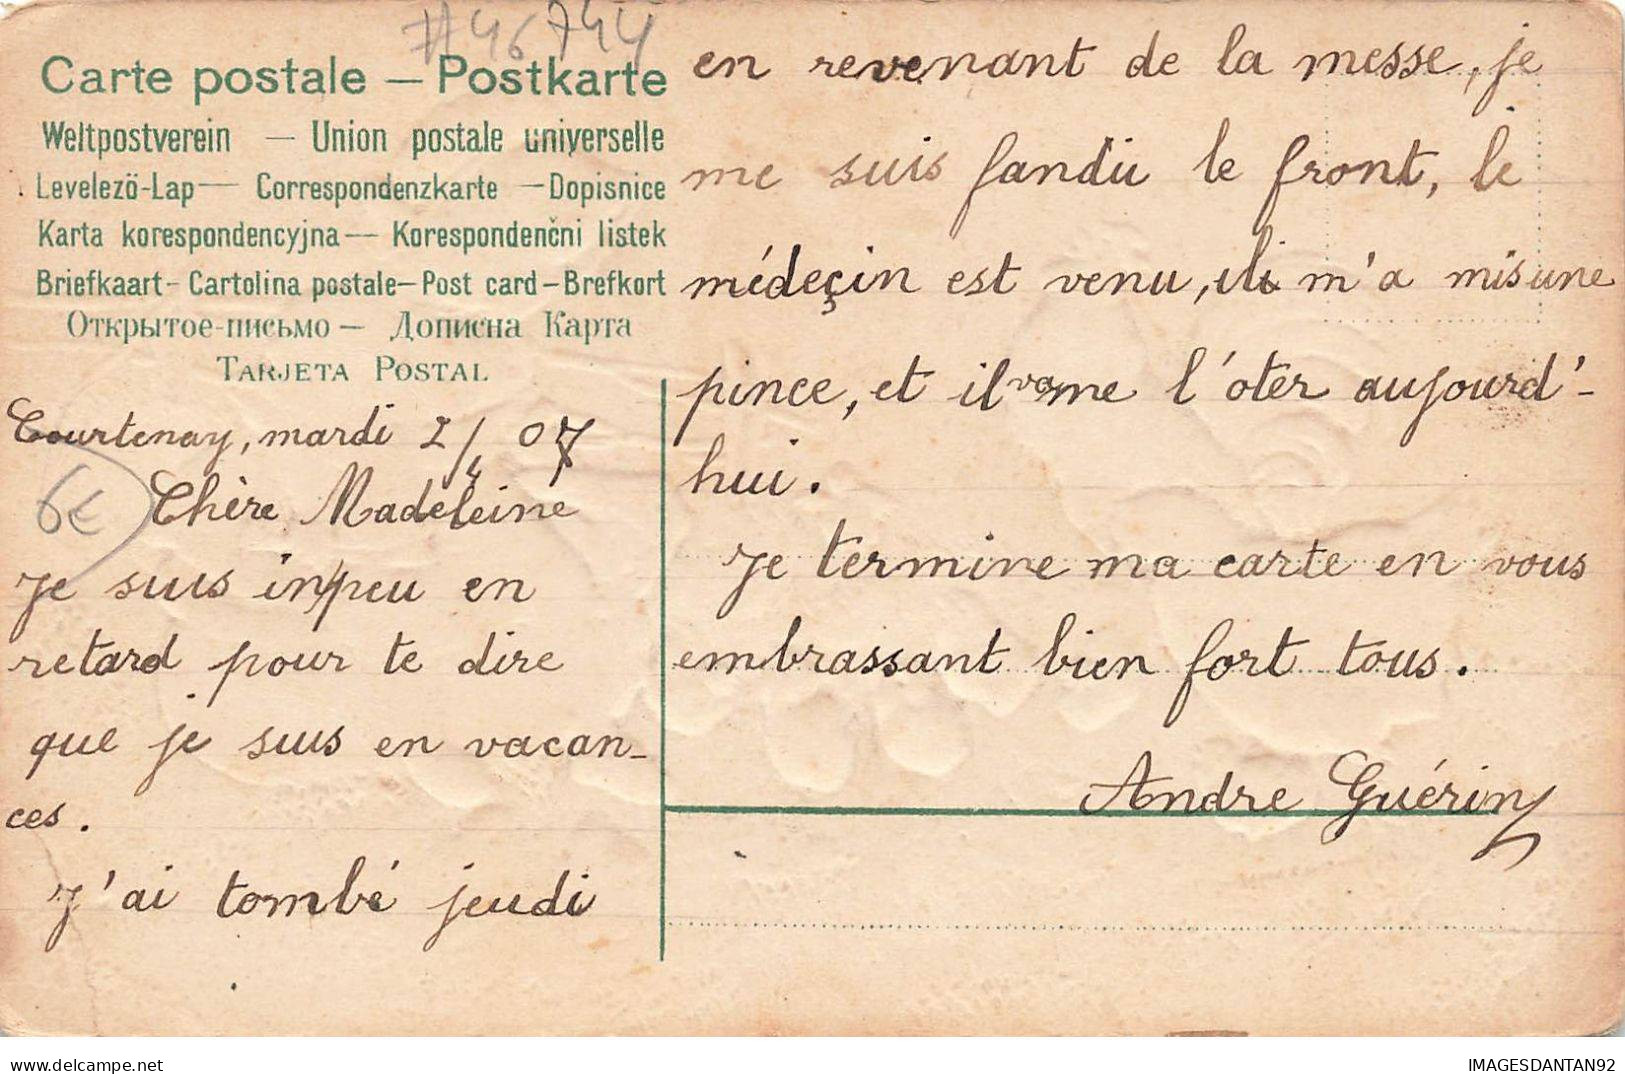 #46744
Carte postale — Postkarte
Weltpostverein — Union postale universelle
Levelező-Lap — Correspondenzkarte — Dopisnice
Karta korespondencyjna — Korespondenčni listek
Briefkaart - Cartolina postale - Post card - Brefkort
Открытое-письмо — Дописна Карта
TARJETA POSTAL
Courtenay, mardi 2/4 07
6€
Chère Madeleine
Je suis in peu en
retard pour te dire
que je suis en vacan-
ces.
J'ai tombé jeudi
en revenant de la messe, je
me suis fandu le front, le
médeçin est venu, il m'a mis une
pince, et il va me l'oter aujourd'-
hui.
Je termine ma carte en vous
embrassant bien fort tous.
Andre Guérin
delcampe.net
IMAGESDANTAN92